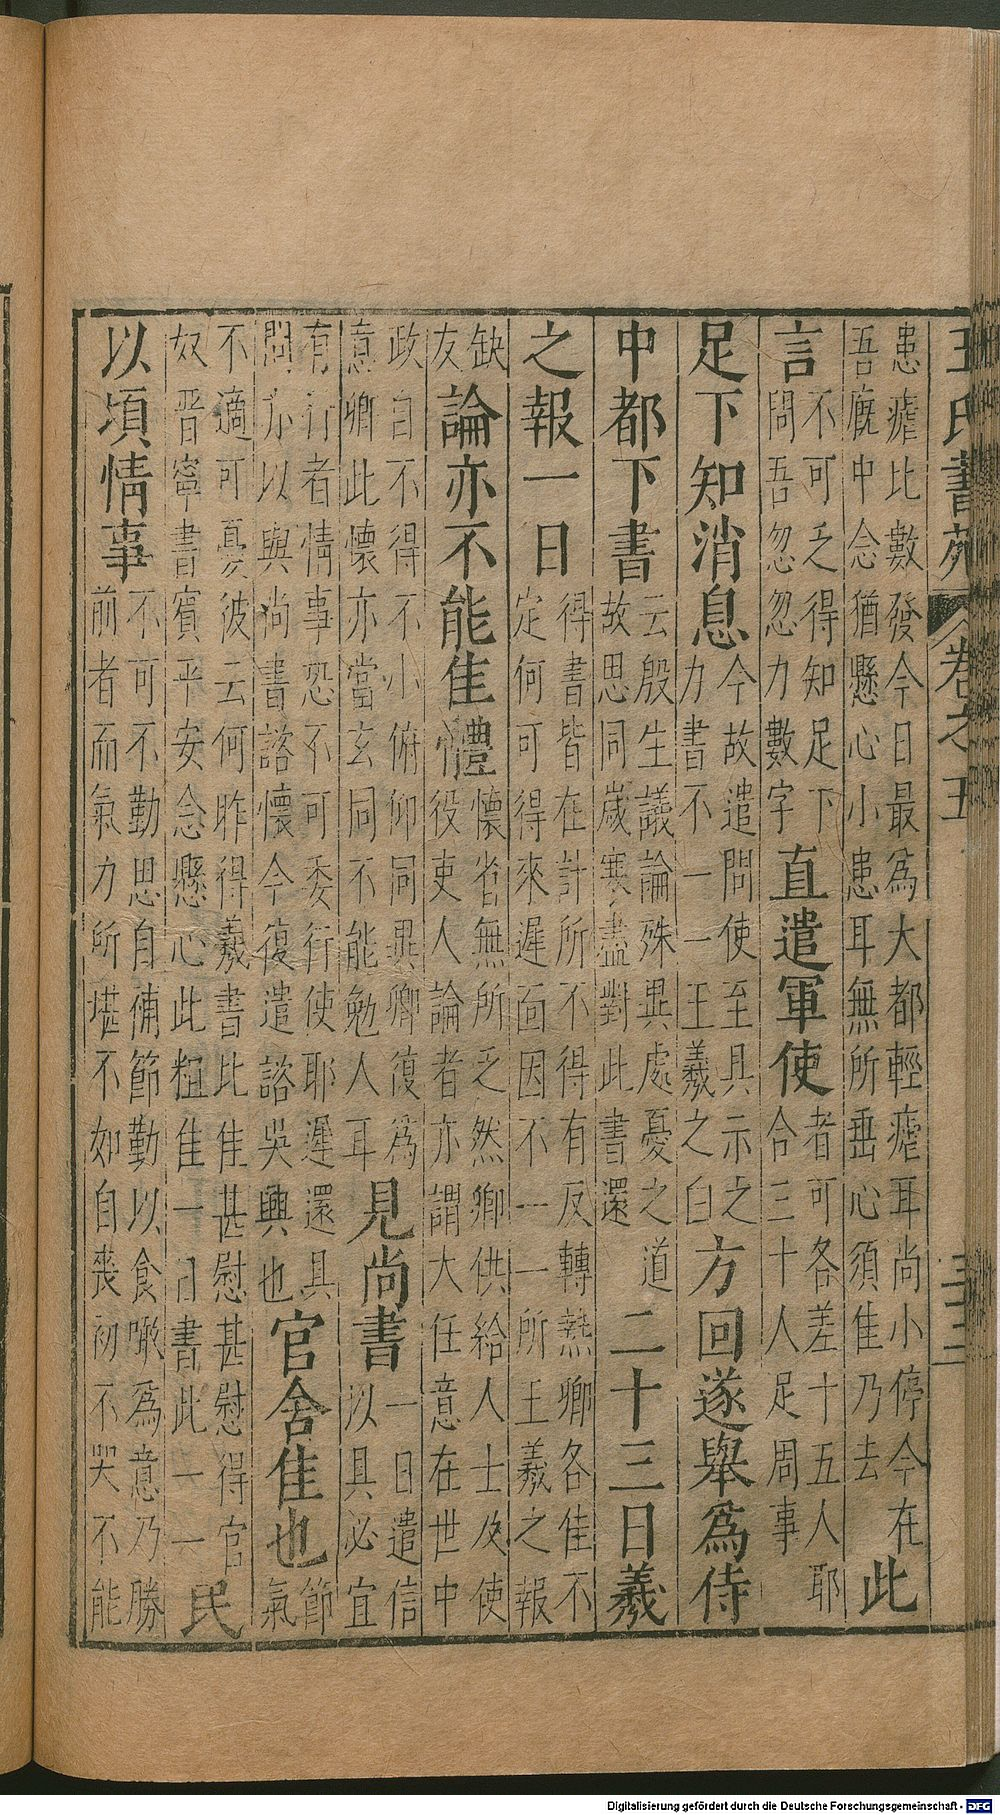 王氏書苑 卷之五
患瘧比數發今日最為大都輕瘧耳尚小停今在
吾廐中念猶懸心小患耳無所歪心須佳乃去
此
言
不可乏得知足下
問吾忽忽力數字
直遣軍使
者可各差十五人耶
合三十人足周事
足下知消息
今故遣問使至具示之
力書不一一王羲之白
方回遂舉為侍
中都下書
云殷生議論殊異處憂之道
故思同歲寒盡對此書還
二十三日羲
之報一日
得書皆在計所不得有反轉𤍠卿各佳不
定何可得來遲面因不一一所王羲之報
缺
友
論亦不能佳體
懷省無所乏然卿供給人士及使
役吏人論者亦謂大任意在世中
政自不得不小俯仰同異卿復為
意卿此懷亦當玄同不能勉人耳
見尚書
一日遣信
以具必宜
有行者情事恐不可委行使耶遲還具
問亦以與尚書諮懷今復遣諮吳興也
官舍佳也
節
氣
不適可憂彼云何昨得羲書此佳甚慰甚慰得官
奴晋寧書賓平安念懸心此粗佳一日書此一一
民
以頃情事
不可不勤思自補節勤以食噉為意乃勝
前者而氣力所堪不如自喪初不哭不能
Digitalisierung gefördert durch die Deutsche Forschungsgemeinschaft - DFG